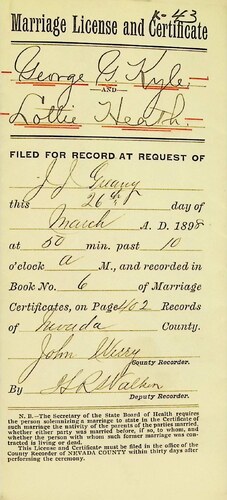 K-43
Marriage License and Certificate
George G. Kyle
AND
Lottie Heath
FILED FOR RECORD AT REQUEST OF
J J Greany
this 26th day of
March A. D. 1898
at 50 min. past 10
o'clock a M., and recorded in
Book No. 6 of Marriage
Certificates, on Page 402 Records
of Nevada County.
John Werry
County Recorder.
By H R Walker
Deputy Recorder.
N. B.—The Secretary of the State Board of Health requires
the person solemnizing a marriage to state in the Certificate of
such marriage the nativity of the parents of the parties married,
whether either party was married before, if so, to whom, and
whether the person with whom such former marriage was con-
tracted is living or dead.
This License and Certificate must be filed in the office of the
County Recorder of NEVADA COUNTY within thirty days after
performing the ceremony.